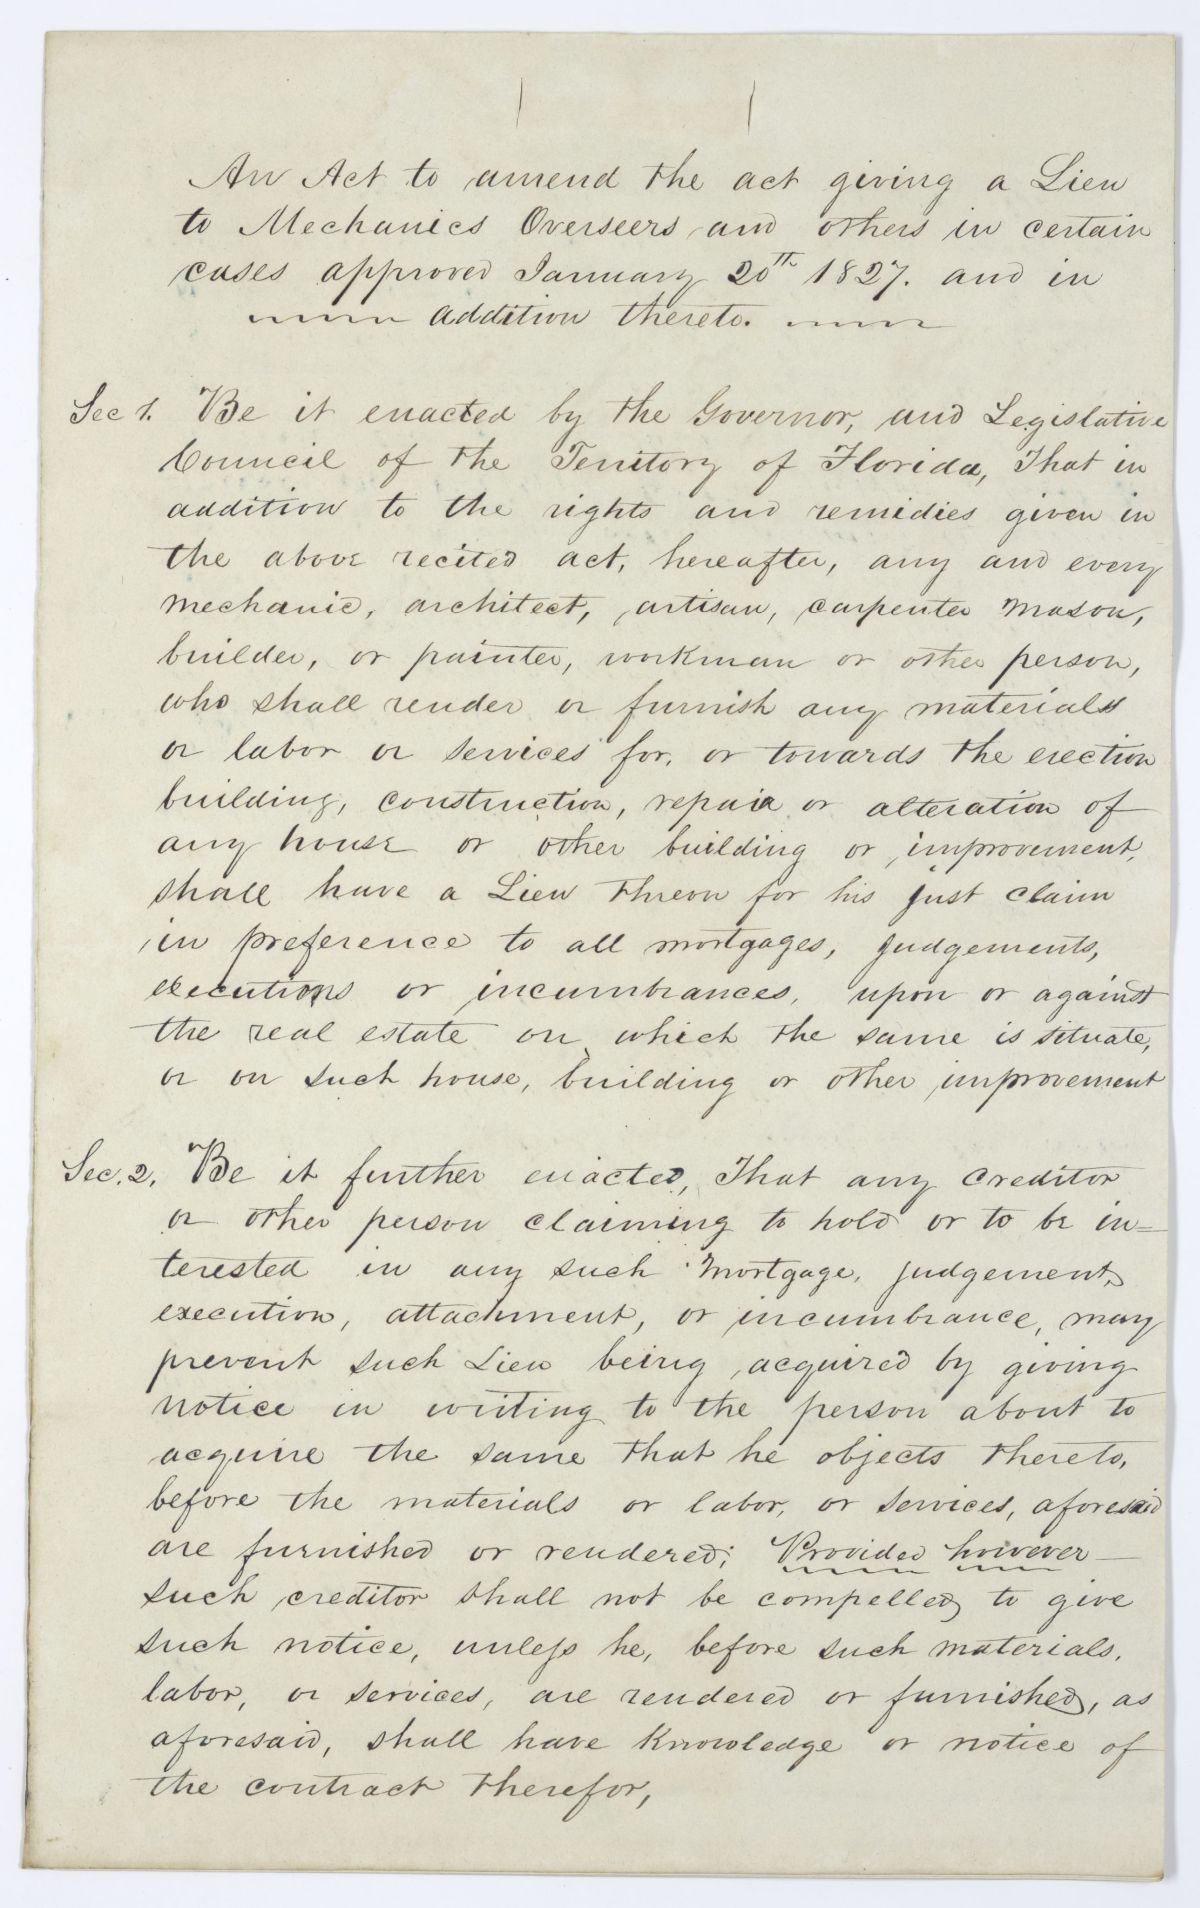 An Act to amend the act giving a Lien
to Mechanics Overseers and others in certain
cases approved January 20th 1827. and in
addition thereto.
Sec 1. Be it enacted by the Governor, and Legislative
Council of the Territory of Florida, That in
addition to the rights and remidies given in
the above recited act, hereafter, any and every
mechanic, architect, artisan, carpenter mason,
builder, or painter, workman or other person,
who shall render or furnish any materials
or labor or services for, or towards the erection
building, construction, repair or alteration of
any house or other building or improvement,
shall have a Lien threon for his just claim
in preference to all mortgages, judgements,
executions or incumbrances, upon or against
the real estate on which the same is situate,
or on such house, building or other improvement
Sec. 2. Be it further enacted, That any creditor
or other person claiming to hold or to be in=
terested in any such mortgage, judgement,
execution, attachment, or incumbrance, may
prevent such Lien being acquired by giving
notice in writing to the person about to
acquire the same that he objects thereto,
before the materials or labor, or services, aforesaid
are furnished or rendered; Provided however
such creditor shall not be compelled to give
such notice, unless he, before such materials,
labor, or services, are rendered or furnished, as
aforesaid, shall have knowledge or notice of
the contract therefor,